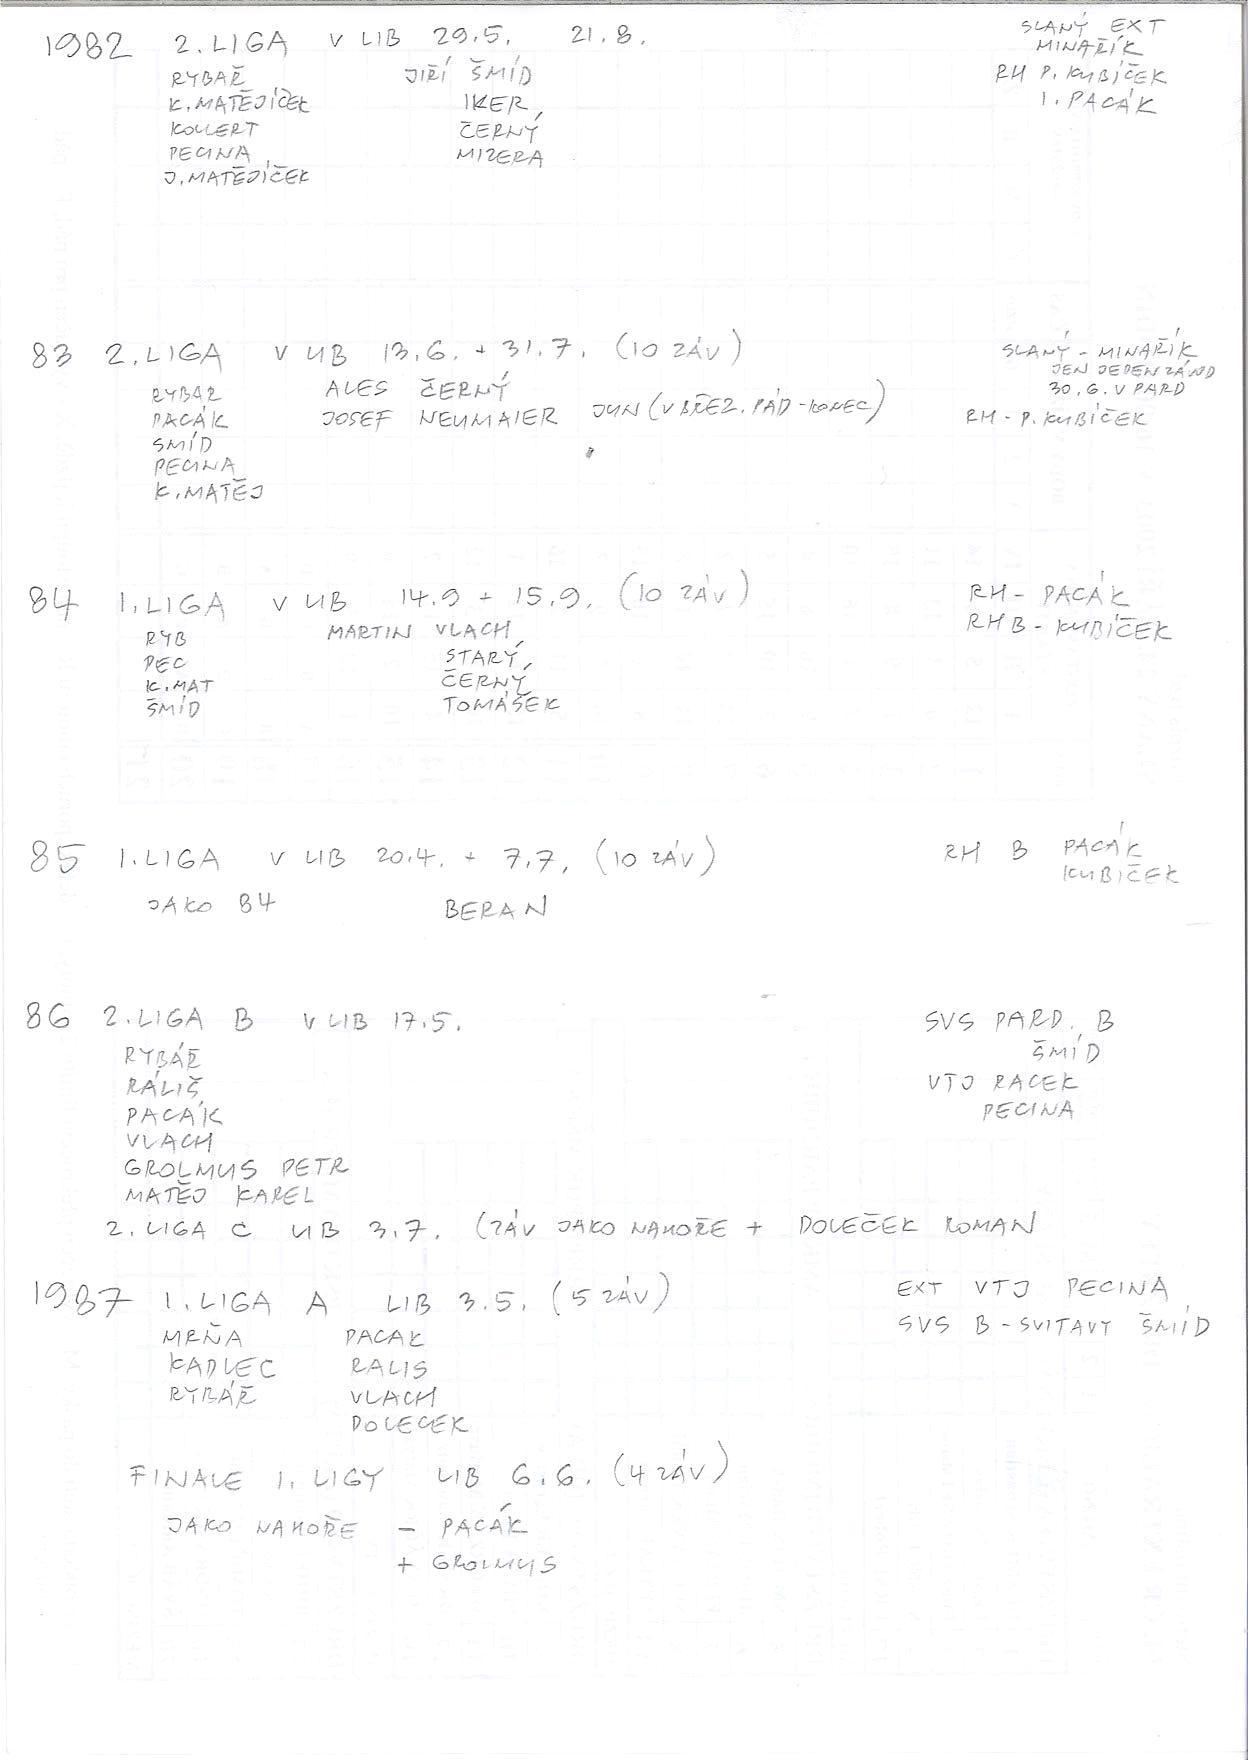 1982 2. LIGA V LIB 29.5. 21.8.
RYBAŘ JIŘÍ ŠMÍD
K. MATĚJÍČEK IKER,
KOLLERT ČERNÝ
PECINA MIZERA
J. MATĚJÍČEK
SLANÝ EXT
MINAŘÍK
RH P. KUBÍČEK
I. PACÁK
83 2. LIGA V LIB 13.6. + 31.7. (10 ZÁV)
RYBAŘ ALES ČERNÝ
PACÁK JOSEF NEUMAIER JUN (V BŘEZ. PÁD - KONEC)
SMÍD
PECINA
K. MATĚJ
SLANÝ - MINAŘÍK
JEN JEDEN ZÁVOD
30.6. V PARD
RH - P. KUBÍČEK
84 1. LIGA V LIB 14.9 + 15.9. (10 ZÁV)
RYB MARTIN VLACH
PEC STARÝ,
K. MAT ČERNÝ
ŠMÍD TOMÁŠEK
RH - PACÁK
RH B - KUBÍČEK
85 1. LIGA V LIB 20.4. + 7.7. (10 ZÁV)
JAKO 84 BERAN
RH B PACÁK
KUBÍČEK
86 2. LIGA B V LIB 17.5.
RYBÁŘ
RÁLIŠ
PACÁK
VLACH
GROLMUS PETR
MATĚJ KAREL
SVS PARD. B
ŠMÍD
VTJ RACEK
PECINA
2. LIGA C LIB 3.7. (ZÁV JAKO NAHOŘE + DOLEČEK ROMAN
1987 1. LIGA A LIB 3.5. (5 ZÁV)
MRŇA PACAK
KADLEC RALIS
RYBÁŘ VLACH
DOLECEK
EXT VTJ PECINA
SVS B - SVITAVY ŠMÍD
FINALE 1. LIGY LIB 6.6. (4 ZÁV)
JAKO NAHOŘE - PACÁK
+ GROLMUS